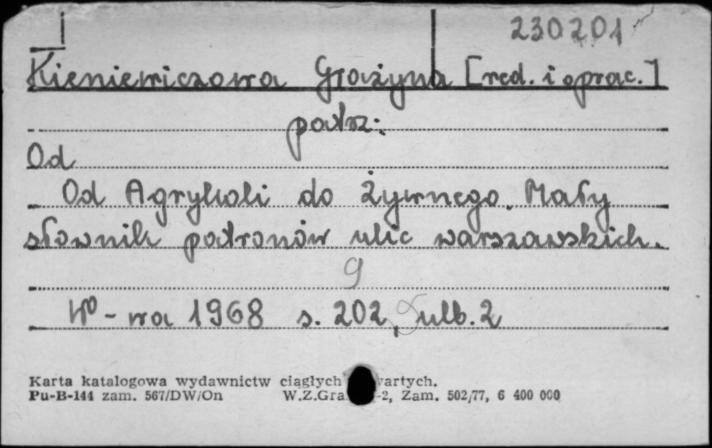 230201
Kieniewiczowa Grażyna [red. i oprac.]
patrz:
Od
Od Agrykoli do Żywnego. Mały
słownik patronów ulic warszawskich.
9
W-wa 1968 s. 202, ulb. 2
Karta katalogowa wydawnictw ciągłych
Pu-B-144 zam. 567/DW/On W.Z.Gra -2, Zam. 502/77, 6 400 000